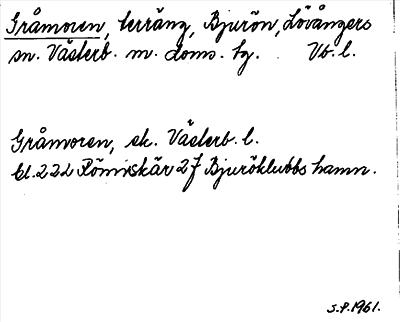 Gråmoren, terräng, Bjurön, Lövångers
sn. Västerb. m. doms. tg. Vb. l.
Gråmoren, sk. Västerb. l.
bl. 222 Römiskär 27 Bjuröklubbs hamn.
S.P. 1961.